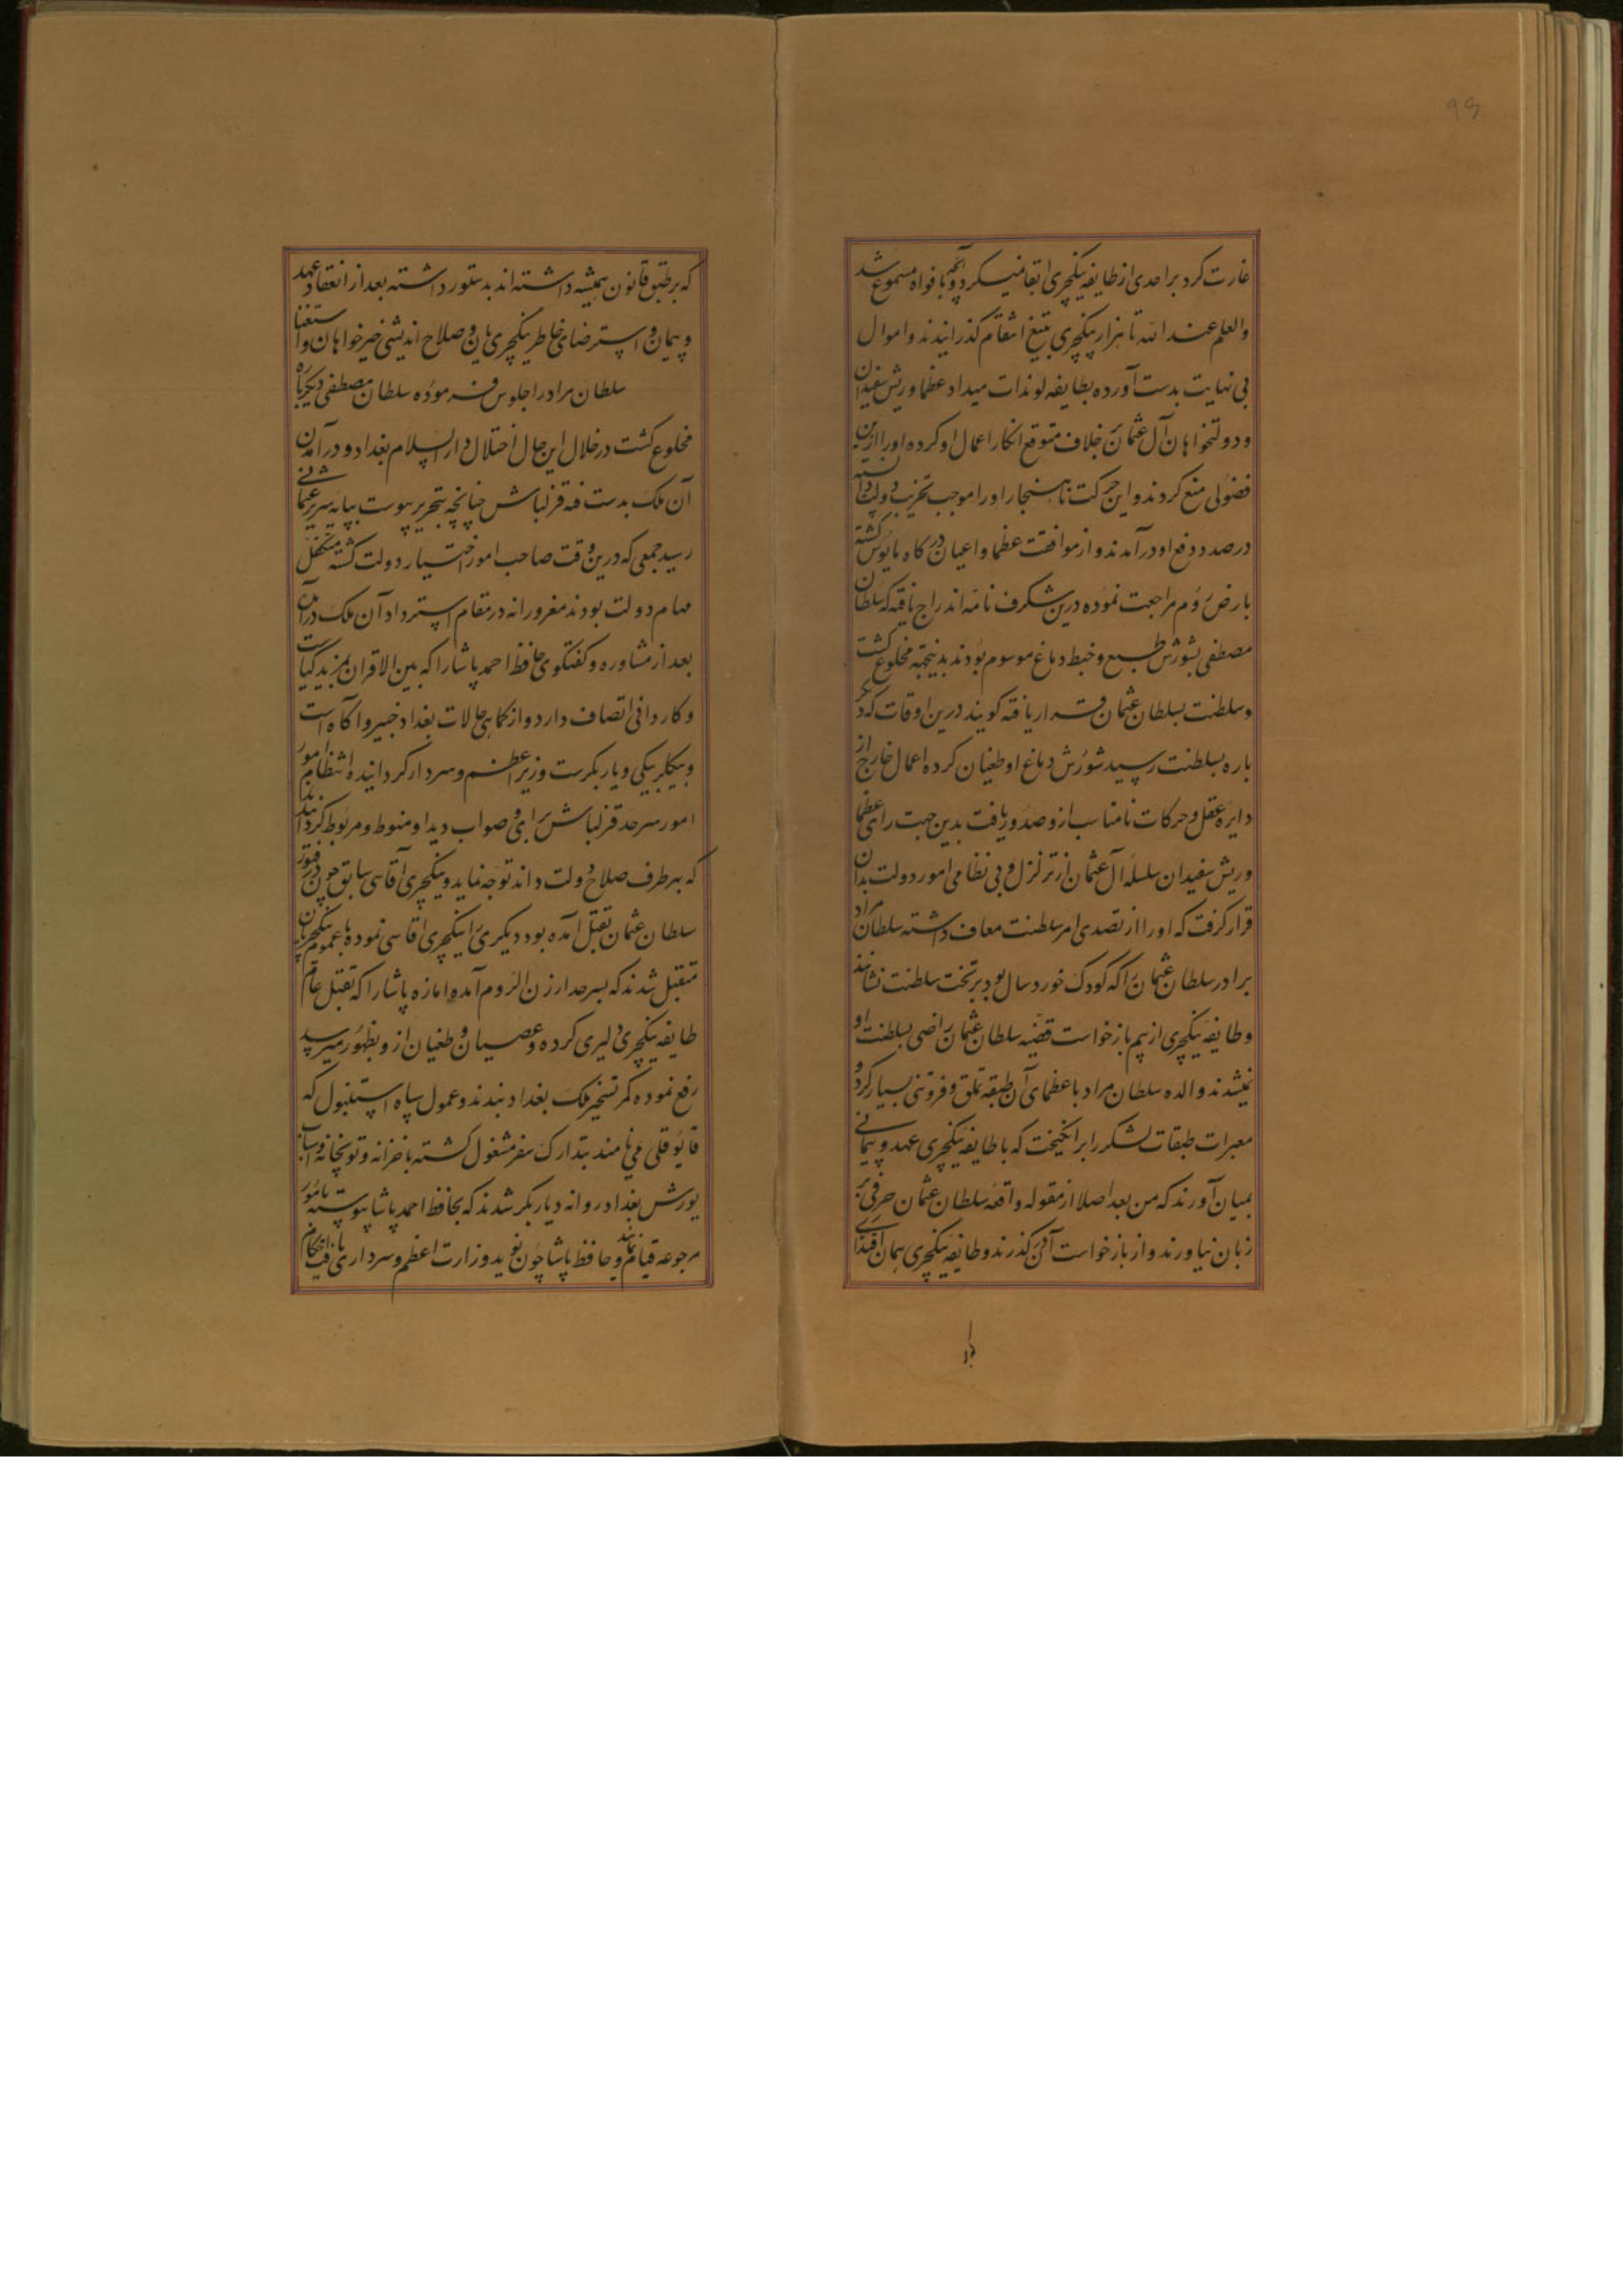 غارت کرد بر احدی از طایفه ینکچری ابقا نمیکرد و آنچه بافواه مسموع شد
والعلم عند الله تا هزار ینکچری بتیغ انتقام گذرانیدند و اموال
بی نهایت بدست آورده بطایفه لوندات میداد عظما و ریش سفیدان
و دولتخواهان آل عثمان خلاف متوقع انکار اعمال او کرده او را ازین
فضولی منع کردند و این حرکت ناهنجار او را موجب تخریب دولت دانسته
درصدد دفع او درآمدند و از موافقت عظما و اعیان درگاه مایوس گشته
بارض روم مراجعت نموده درین شگرف نامه اندراج یافته که سلطان
مصطفی بشورش طبع و خبط دماغ موسوم بودند بدینجهة مخلوع گشت
و سلطنت بسلطان عثمان قرار یافته گویند درین اوقات که دیگر
باره بسلطنت رسید شورش دماغ او طغیان کرده اعمال خارج از
دایره عقل و حرکات نامناسب ازو صدور یافت بدین جهت رای عظما
و ریش سفیدان سلسله آل عثمان از تزلزل و بی نظامی امور دولت بدان
قرار گرفت که او را از تصدی امر سلطنت معاف داشته سلطان مراد
برادر سلطان عثمان را که کودک خورد سال بود بر تخت سلطنت نشانند
و طایفه ینکچری از بیم بازخواست قضیه سلطان عثمان راضی بسلطنت او
نمیشدند والده سلطان مراد با عظمای آن طبقه تملق و فروتنی بسیار کرد و
معبرات طبقات لشکر را برانگیخت که با طایفه ینکچری عهد و پیمانی
بمیان آورند که من بعد اصلا از مقوله واقعه سلطان عثمان حرفی بر
زبان نیاورند و از بازخواست آن گذرند و طایفه ینکچری همان
که بر طبق قانون همیشه داشته اند بدستور داشته بعد از انعقاد عهد
و پیمان و استرضای خاطر ینکچری یان و صلاح اندیشی خیرخواهان و استغنا
سلطان مراد را جلوس فرموده سلطان مصطفی دیگرباره
مخلوع گشت در خلال این حال اختلال دار السلام بغداد و درآمدن
آن ملک بدست فئه قزلباش چنانچه بتحریر پیوست بپایه سریر عثمانی
رسید جمعی که درین وقت صاحب امور اختیار دولت گشته متکفل
مهام دولت بودند مغرورانه در مقام استرداد آن ملک درآمدن
بعد از مشاوره و گفتگوی حافظ احمد پاشا را که بین الاقران بمزید کیاست
و کاردانی اتصاف دارد و از کماهی حالات بغداد خبیر و آگاه است
و بیکلربیکی دیاربکرست وزیر اعظم و سردار گردانیده انتظام امور
امور سرحد قزلباش برای و صواب دید او منوط و مربوط گردانیدند
که بهر طرف صلاح دولت داند توجه نماید و ینکچری آقاسی سابق چون در فتور
سلطان عثمان بقتل آمده بود دیگری را ینکچری اقاسی نموده با عموم ینکچریان
متقبل شدند که بسرحد ارزن الروم آمده ابازه پاشا را که بقتل عام
طایفه ینکچری دلیری کرده و عصیان و طغیان ازو بظهور میرسید
رفع نموده کمر تسخیر ملک بغداد بندند و عموم سپاه استنبول که
قاپوقلی می نامند بتدارک سفر مشغول گشته با خزانه و توپخانه و اسباب
یورش بغداد روانه دیاربکر شدند که بحافظ احمد پاشا پیوسته بامور
مرجوعه قیام نمایند و حافظ پاشا چون نوید وزارت اعظم و سرداری یافت